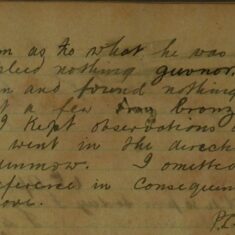 m as to what he was
plied nothing guvnor.
n and found nothing
t a few bronz
I kept observations
went in the direct
unmow. I omitted
eference in consequen
ove.